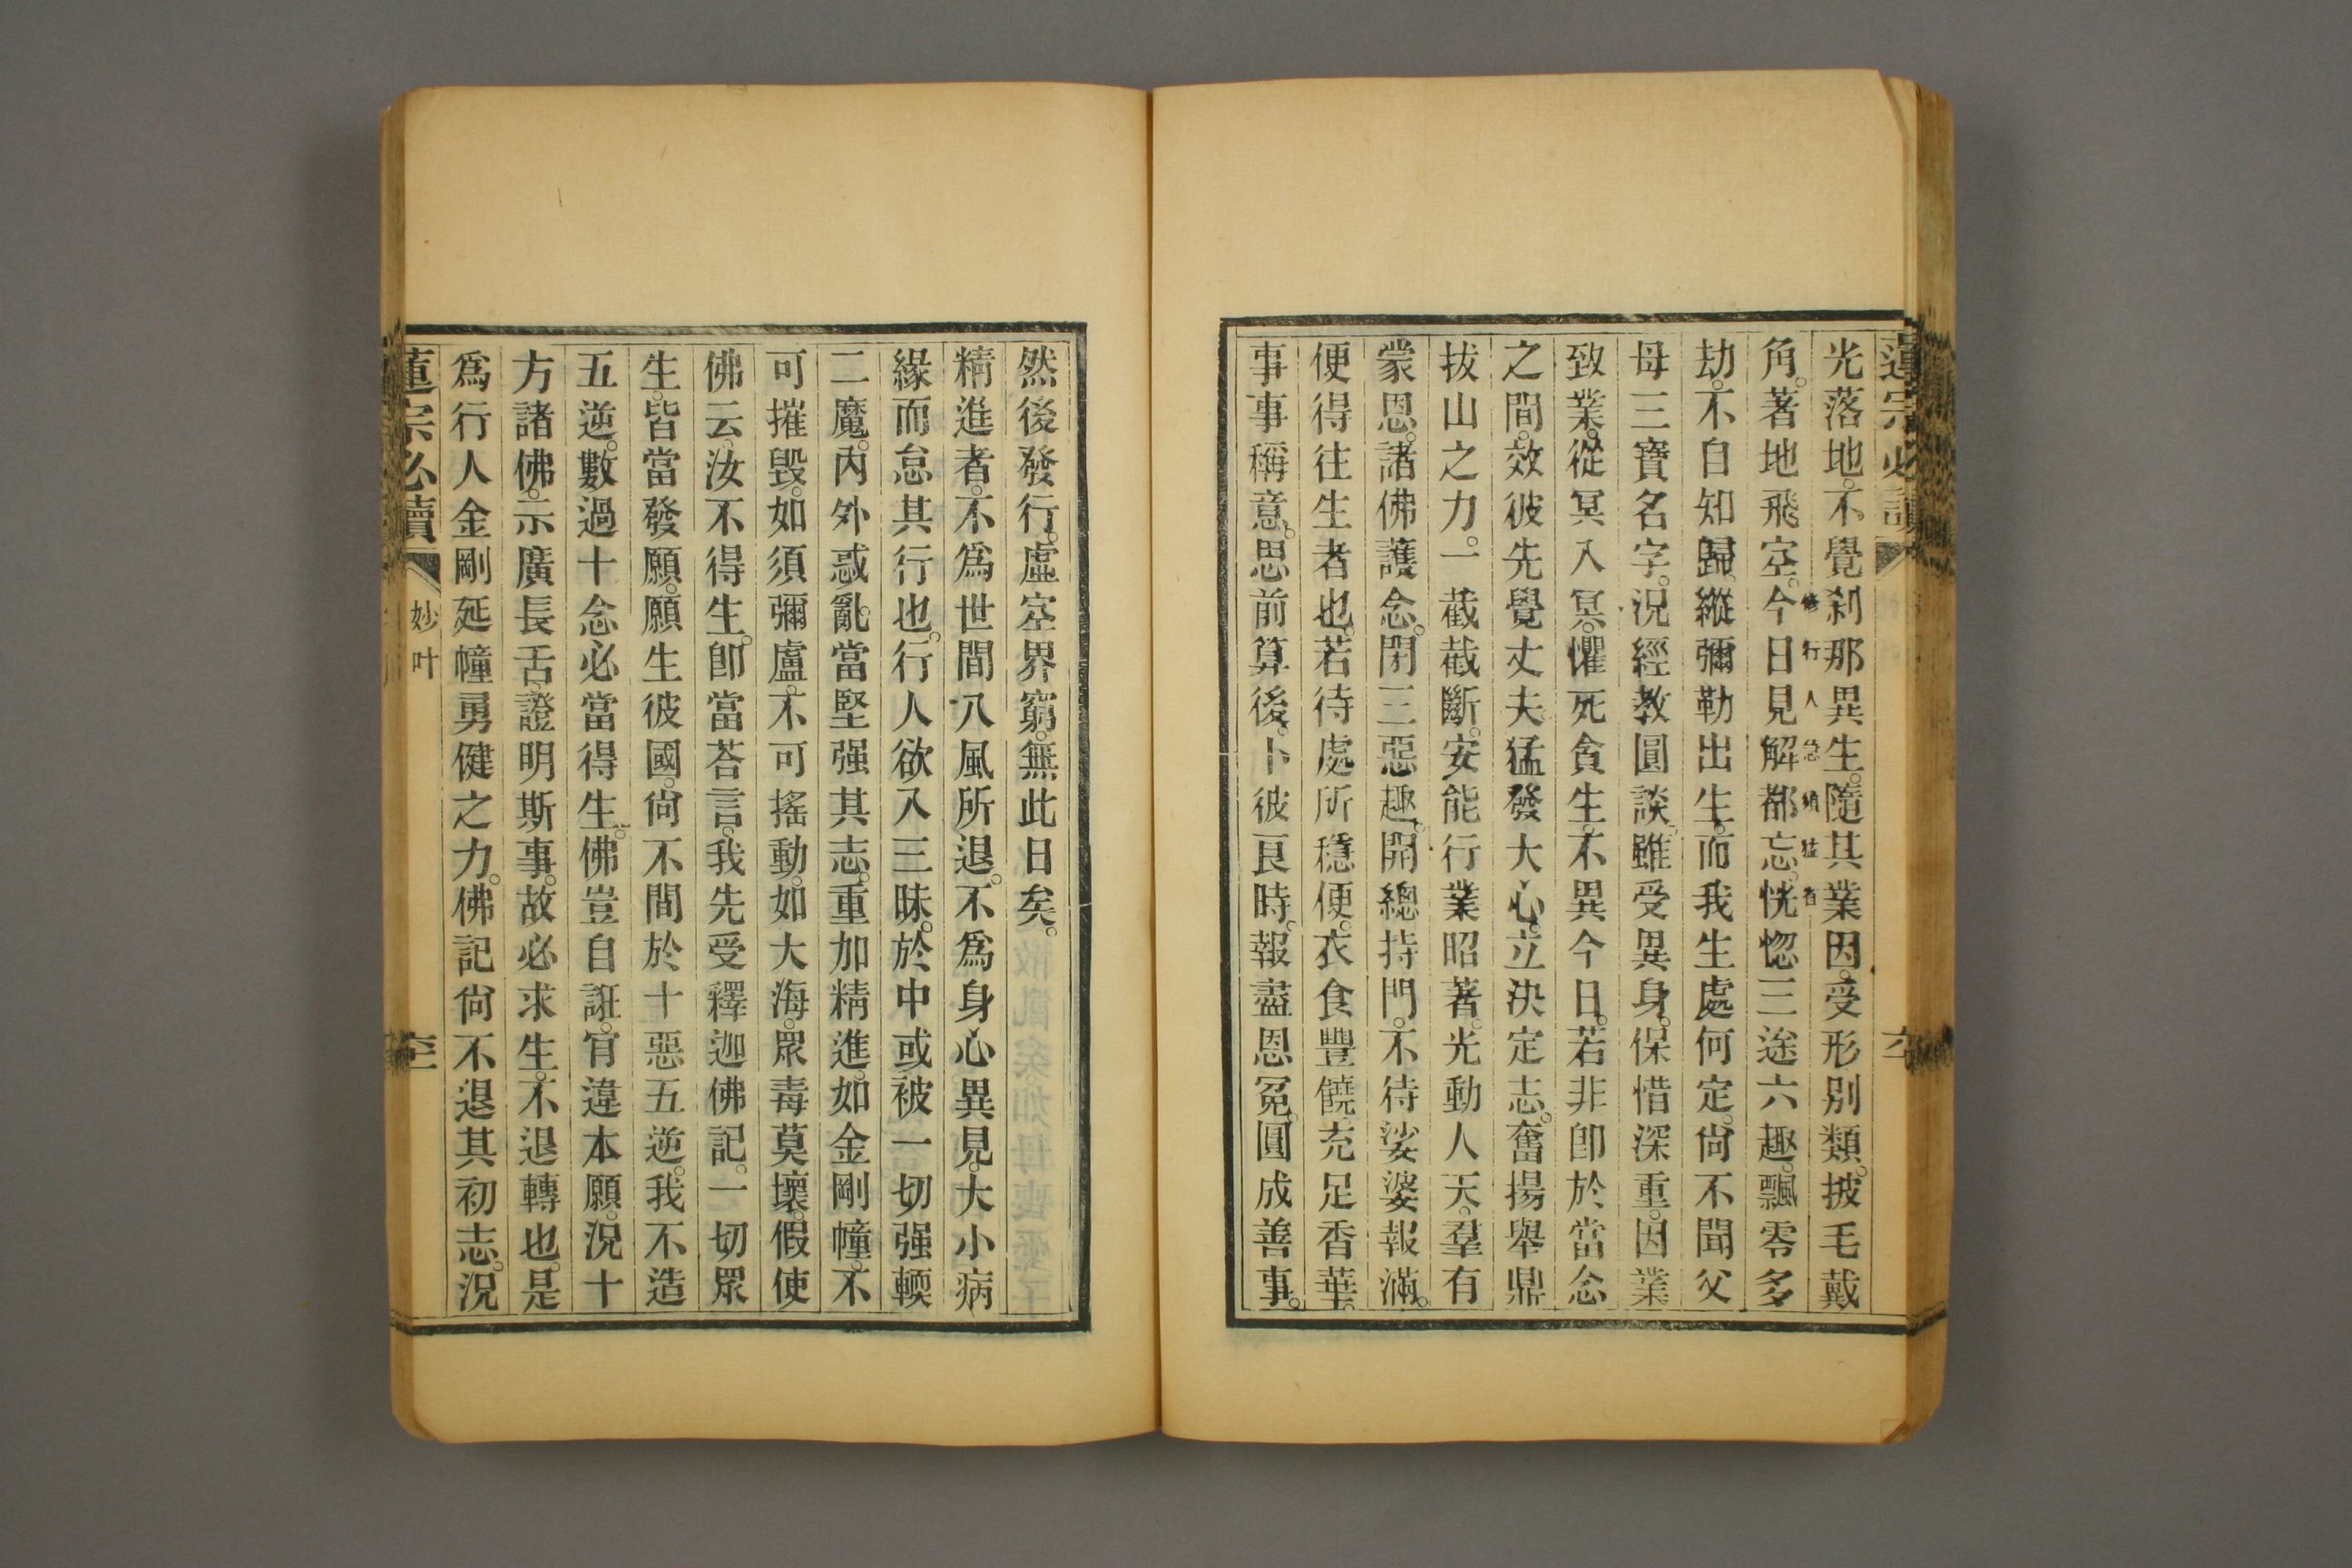 蓮宗必讀
光落地。不覺刹那異生。隨其業因。受形別類。披毛戴
角。著地飛空。今日見解都忘。恍惚三途六趣。飄零多
劫。不自知歸。縱彌勒出生。而我生處何定。尙不聞父
母三寶名字。況經教圓談。雖受異身。保惜深重。因業
致業。從冥入冥。懼死貪生。不異今日。若非卽於當念
之間。效彼先覺丈夫。猛發大心。立決定志。奮揚舉鼎
拔山之力。一截截斷。安能行業昭著。光動人天。羣有
蒙恩。諸佛護念。閉三惡趣。開總持門。不待娑婆報滿。
便得往生者也。若待處所穩便。衣食豐饒。充足香華。
事事稱意。思前算後。卜彼良時。報盡恩冤。圓成善事。
然後發行。虛空界窮。無此日矣。
精進者。不爲世間八風所退。不爲身心異見。大小病
緣而怠其行也。行人欲入三昧。於中或被一切强輭
二魔。內外惑亂。當堅强其志。重加精進。如金剛幢。不
可摧毀。如須彌盧。不可搖動。如大海。眾毒莫壞。假使
佛云。汝不得生。卽當荅言。我先受釋迦佛記。一切眾
生。皆當發願。願生彼國。尙不間於十惡五逆。我不造
五逆。數過十念。必當得生。佛豈自誑。肯違本願。況十
方諸佛。示廣長舌。證明斯事。故必求生。不退轉也。是
爲行人金剛延幢勇健之力。佛記尙不退其初志。況
蓮宗必讀
妙叶